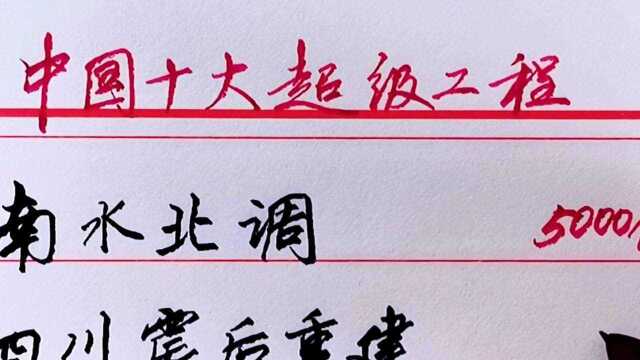 中國十大超级工程
南水北调 5000
四川震后重建